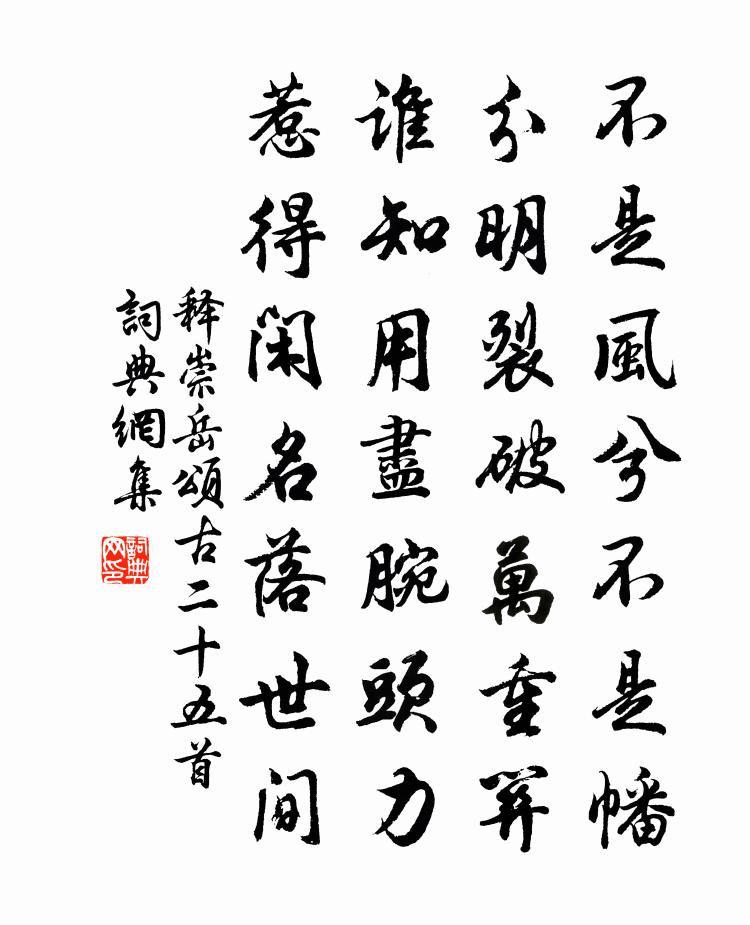 不是風兮不是幡
分明裂破萬重關
誰知用盡腕頭力
惹得閑名落世間
释崇岳頌古二十五首
詞典網集
詞典网印